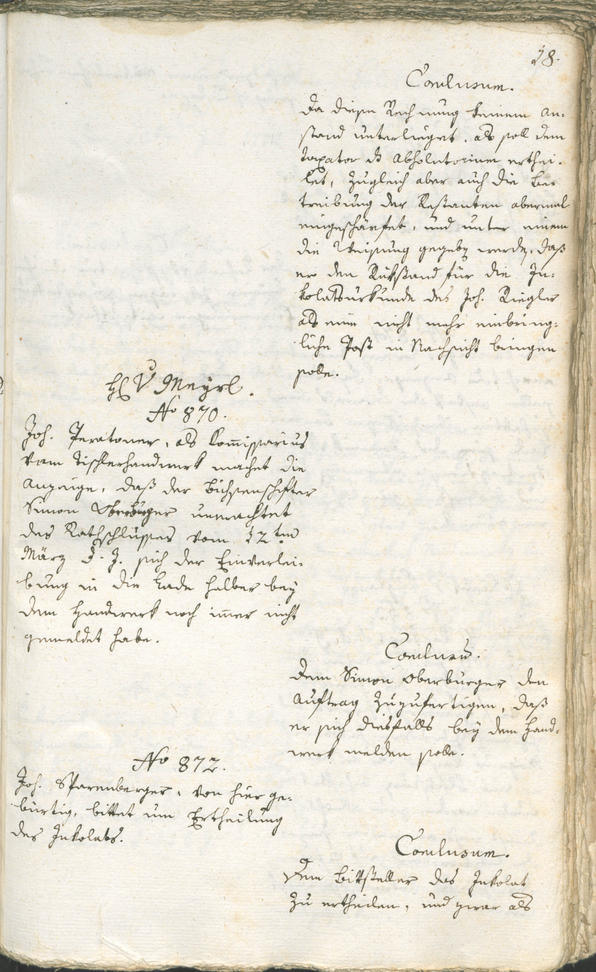 18.
Conclusum.
Da diese Rechnung keinem An-
stand unterlieget, als soll dem
Taxator ds Absolutorium erthei-
let, zugleich aber auch die Bei-
treibung der Restanten abermal
eingeschärfet, und unter einem
die Weisung gegebn werde, daß
er den Rükstand für die In-
kolatsurkunde des Joh. Riegler
als eine nicht mehr einbring-
liche Post in Nachsicht bringen
solle.
H V Meyrl.
No 870.
Joh. Teratoner, als Kommissarius
vom Tischlerhandwerk machet die
Anzeige, daß der Büchsenschifter
Simon Oberburger unerachtet
des Rathschlusses vom 12ten
März d. J. sich der Einverlei-
bung in die Lade halber bey
dem Handwerk noch immer nicht
gemeldet habe.
Conclusum.
Dem Simon Oberburger den
Auftrag zuzufertigen, daß
er sich diesfalls bey dem Hand-
werk melden solle.
No 872.
Joh. Sparenberger, von hier ge-
bürtig, bittet um Ertheilung
des Inkolats.
Conclusum.
Dem Bittsteller das Inkolat
zu ertheilen, und zwar als